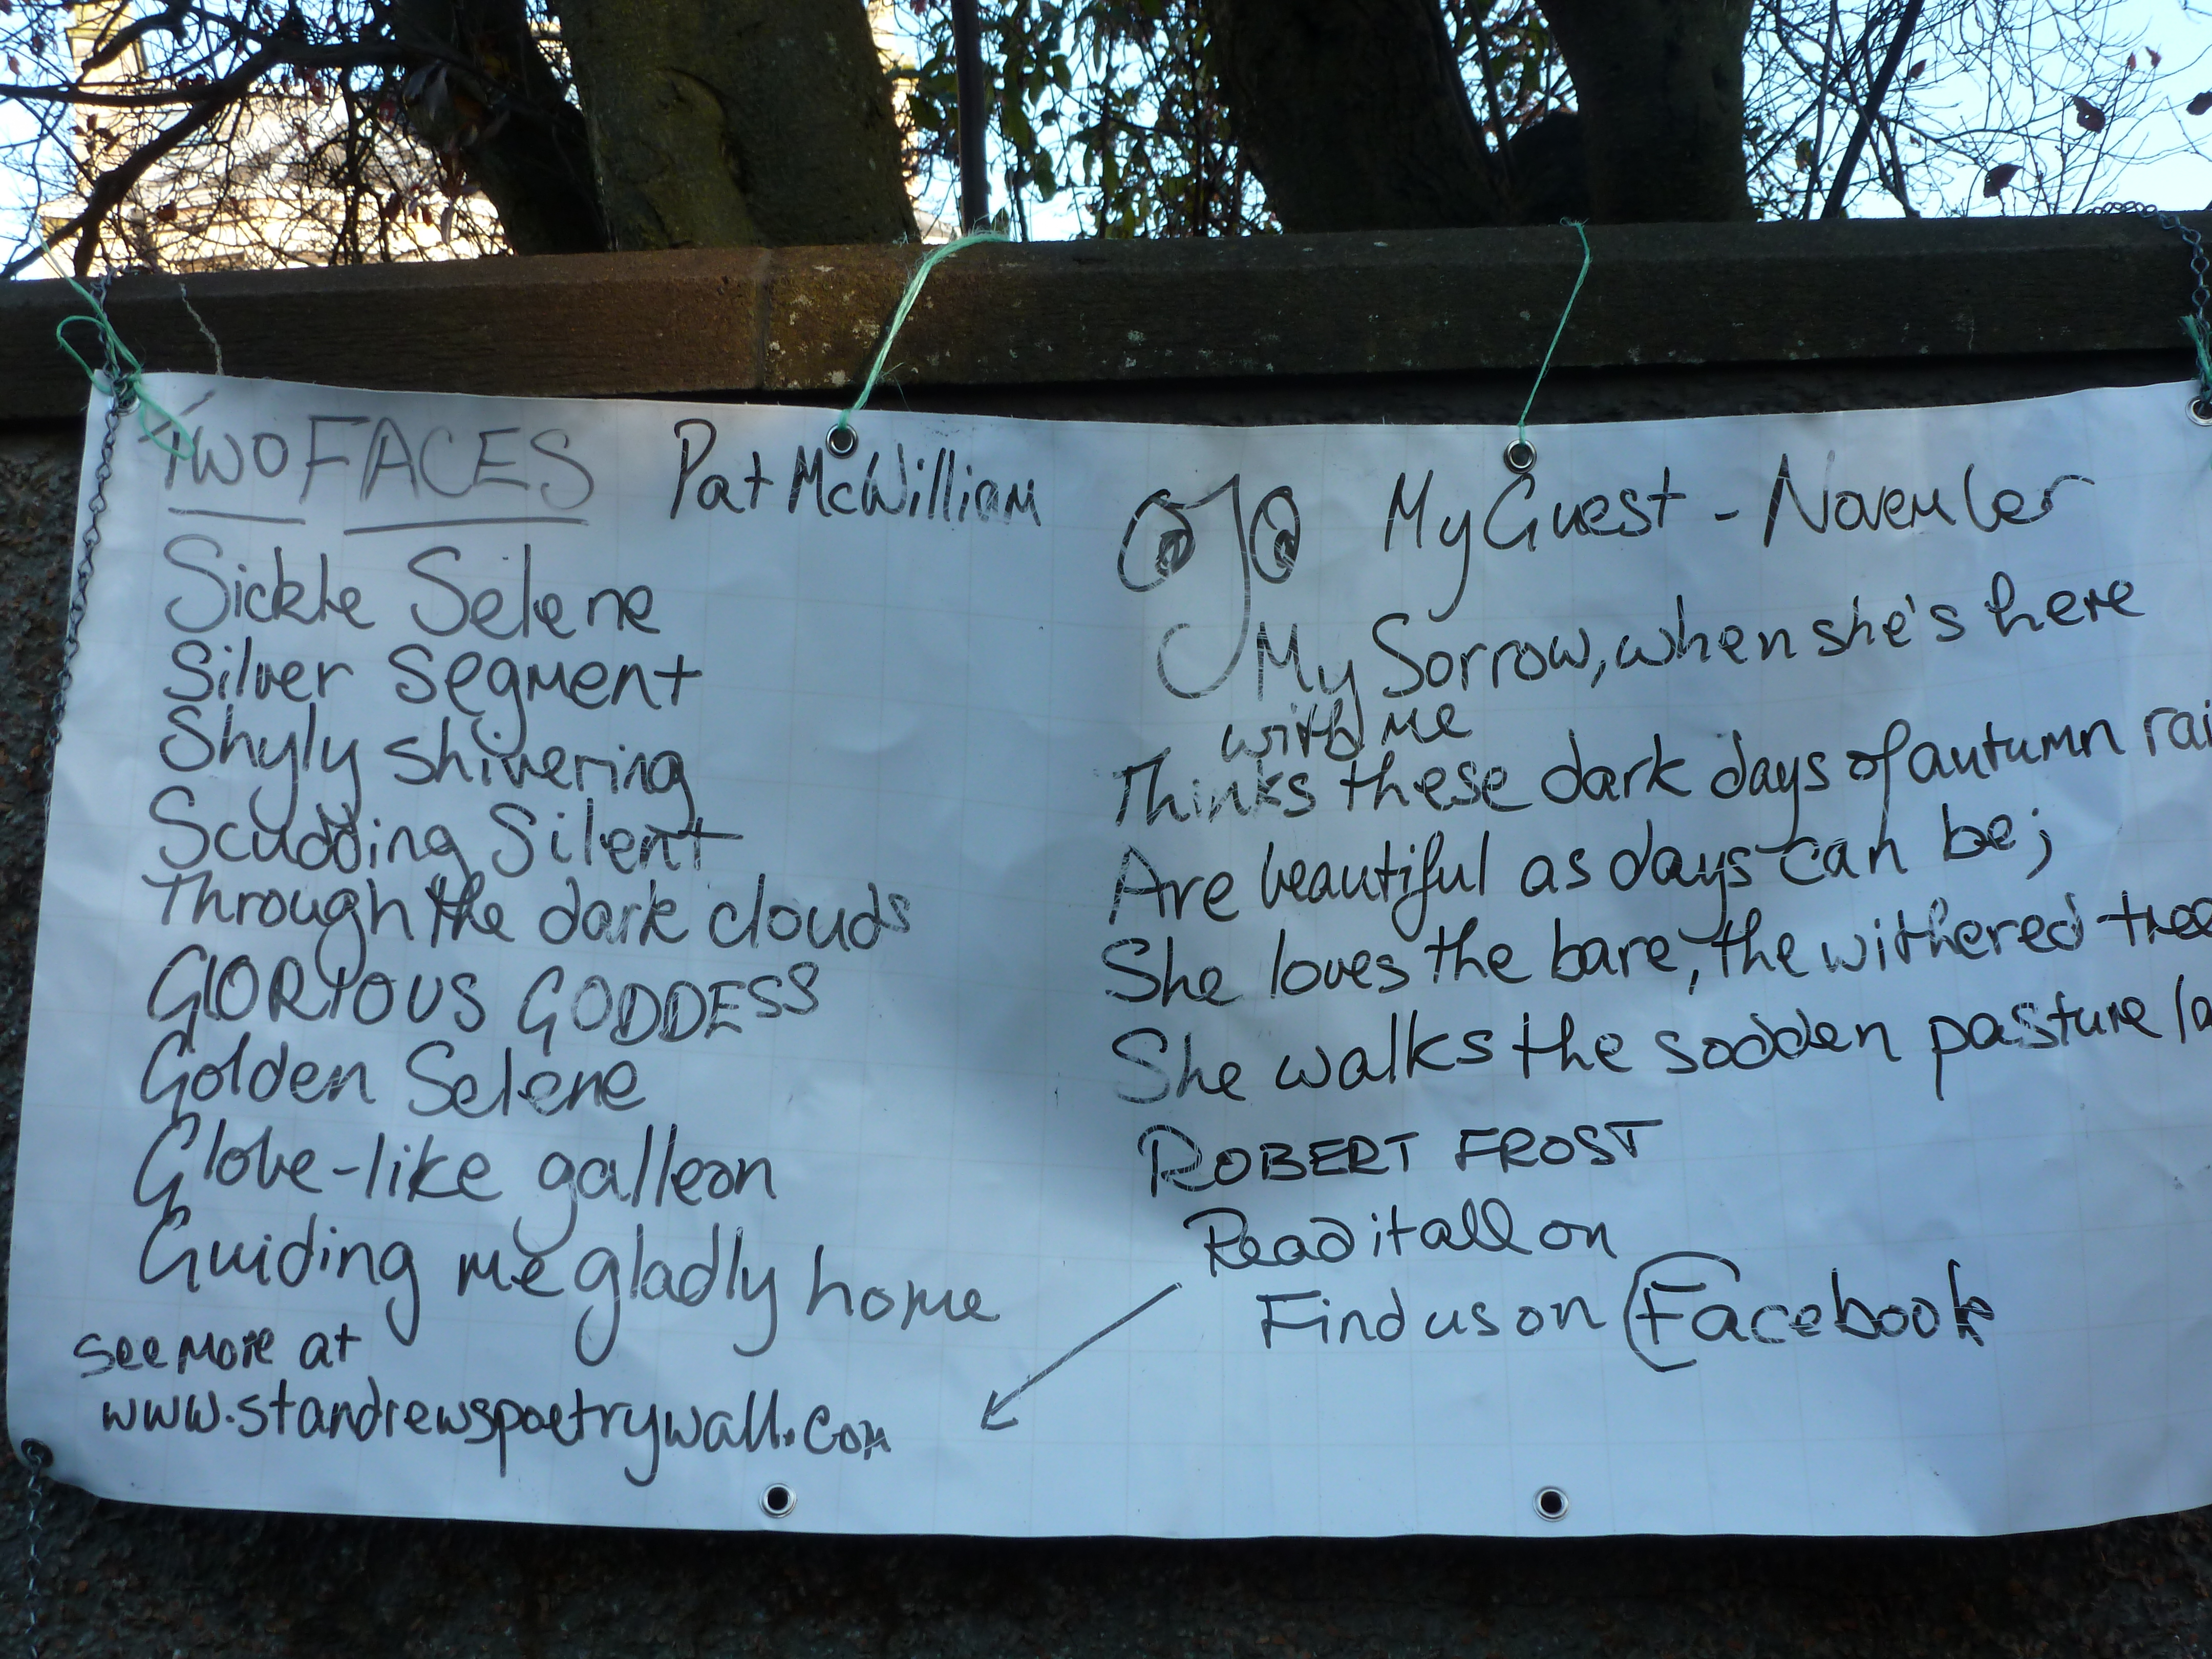 TWO FACES Pat McWilliam
Sickle Selene
Silver Segment
Shyly shivering
Scudding Silent
Through the dark clouds
GlORIOUS GODDESS
Golden Selene
Globe-like galleon
Guiding me gladly home
See More at
www.standrewspoetrywall.com
My Guest - November
My Sorrow, when she's here
with me
Thinks these dark days of autumn rai
Are beautiful as days can be;
She loves the bare, the withered tree
She walks the sodden pasture la
ROBERT FROST
Read it all on
Find us on Facebook